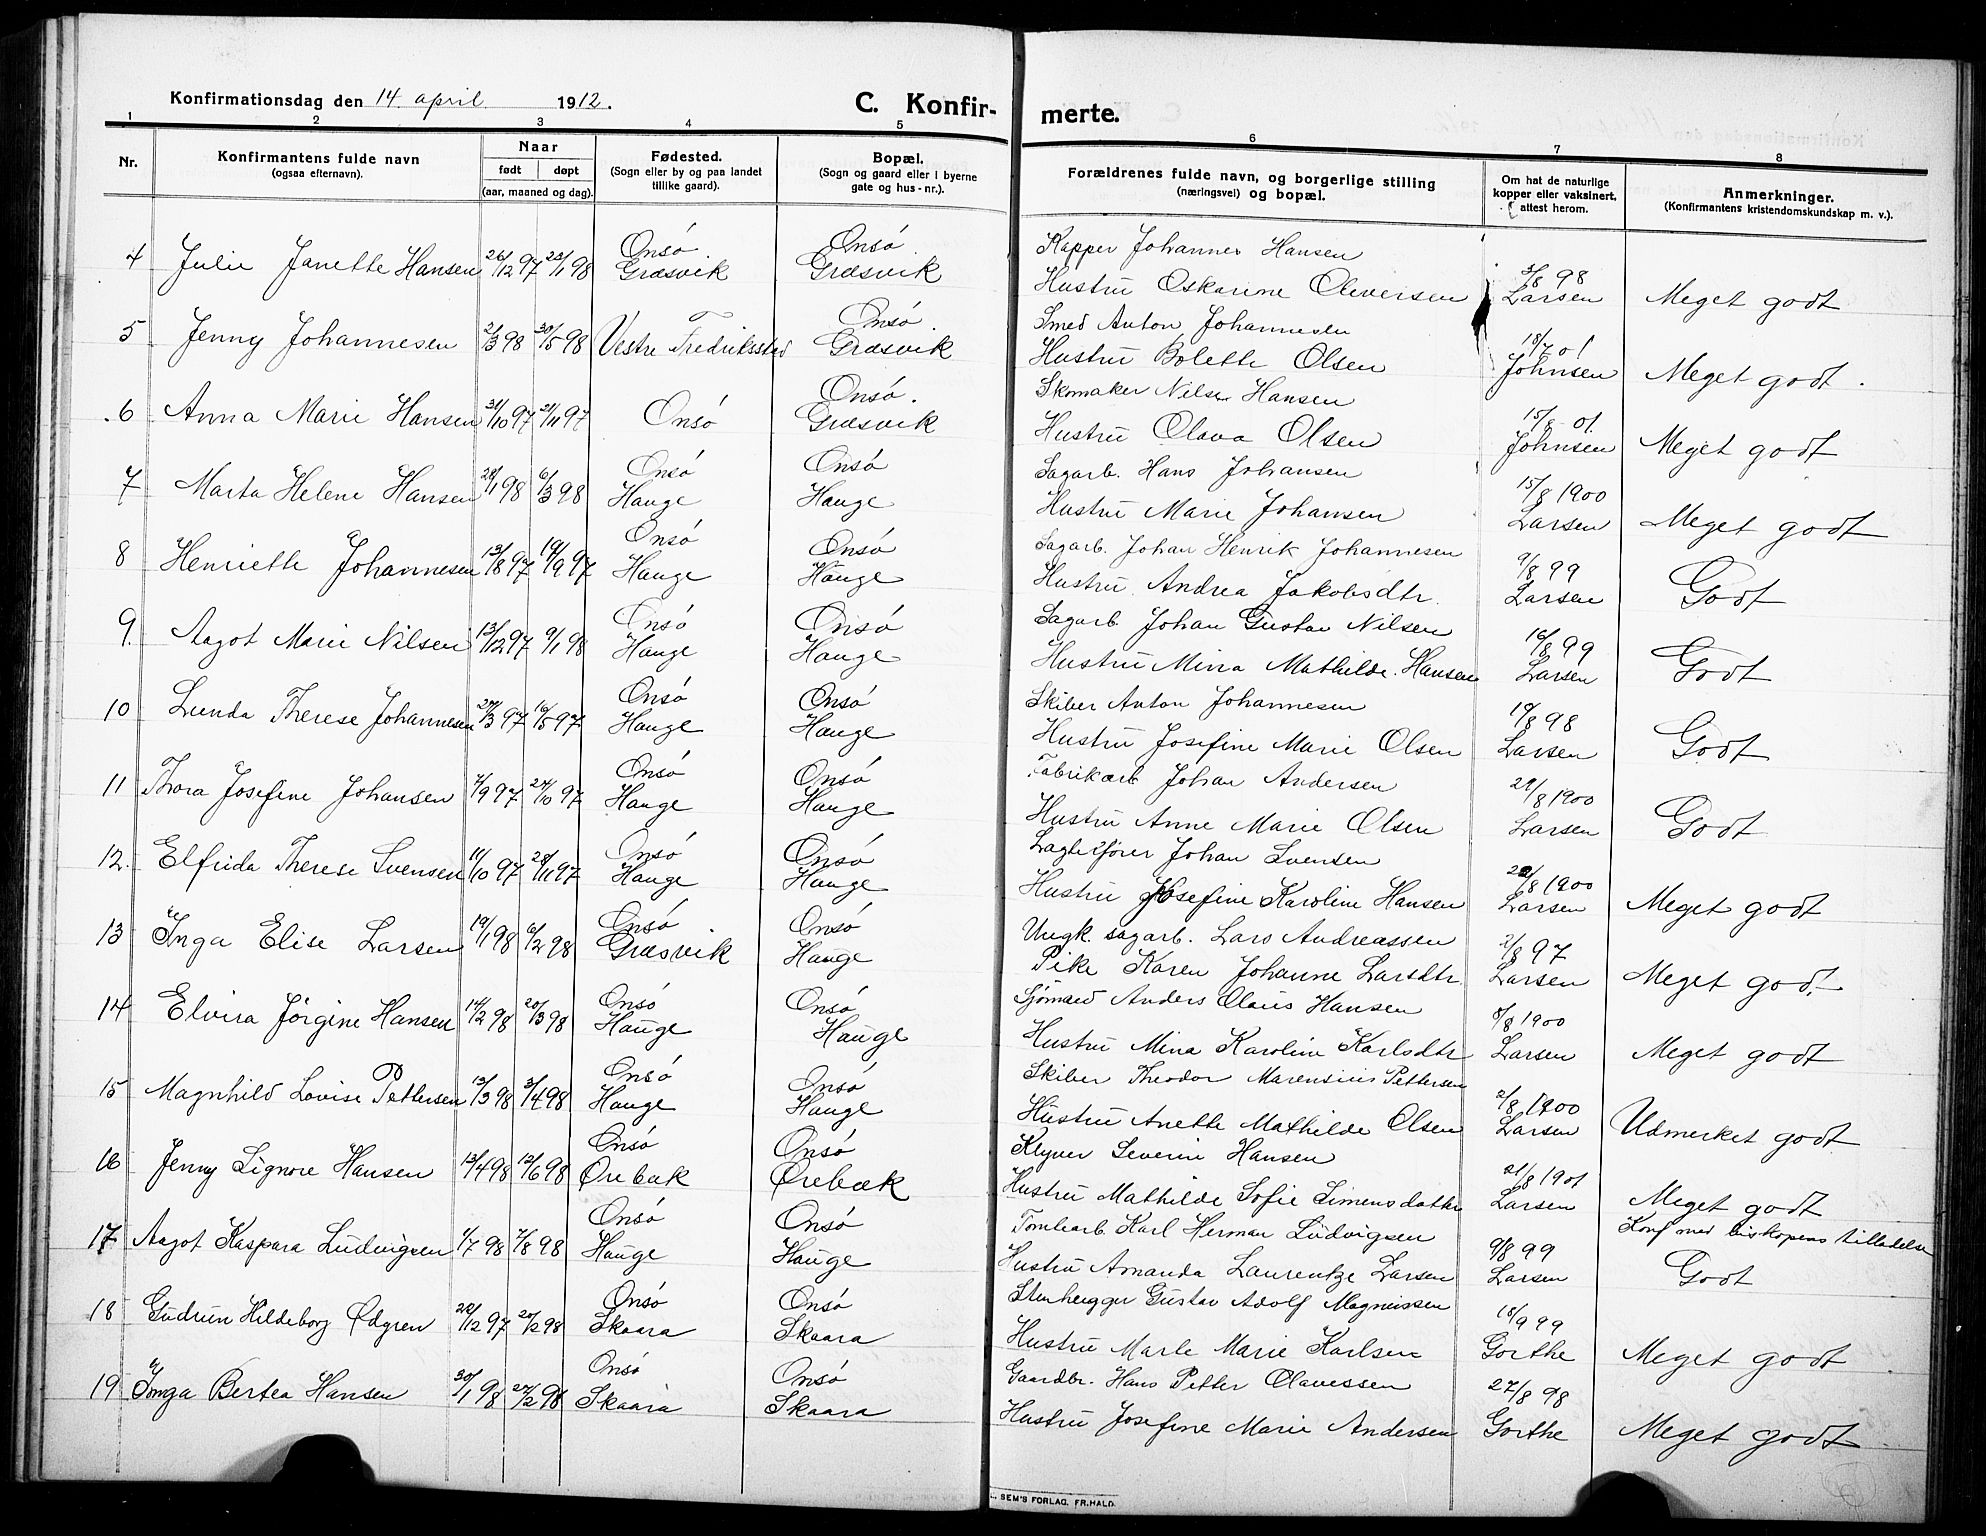 Konfirmationsdag den 14. april 1912.
C. Konfir-
merte.
1 2 3 4 5 6 7 8
Nr.
Konfirmantens fulde navn
(ogsaa efternavn).
Naar
født døpt
(aar, maaned og dag).
Fødested.
(Sogn eller by og paa landet
tillike gaard).
Bopæl.
(Sogn og gaard eller i byerne
gate og hus-nr.).
Forældrenes fulde navn, og borgerlige stilling
(næringsvei) og bopæl.
Om hat de naturlige
kopper eller vaksinert,
attest herom.
Anmerkninger.
(Konfirmantens kristendomskundskap m. v.).
Onsø Onsø Kapper Johannes Hansen
4 Julie Janette Hansen 26/12 97 23/1 98 Græsvik Græsvik Hustru Oskarine Oliversen 3/8 98 Larsen Meget godt
Onsø Smed Anton Johannesen
5 Jenny Johannesen 2/3 98 30/5 98 Vestre Fredriksstad Græsvik Hustru Bolette Olsen 18/7 01 Johnsen Meget godt.
Onsø. Skomaker Nilser Hansen
6 Anna Marie Hansen 31/10 97 21/11 97 Onsø Græsvik Hustru Olava Olsen 15/8 01. Johnsen Meget godt
Onsø Onsø Sagarb. Hans Johansen
7 Marta Helene Hansen 28/1 98 6/3 98 Hauge Hauge Hustru Marie Johansen 15/8 1900 Larsen Meget godt
Onsø Onsø Sagarb. Johan Henrik Johannesen
8 Henriette Johannesen 13/8 97 19/9 97 Hauge Hauge Hustru Andrea Jakobsdtr. 9/8 99 Larsen Godt
Onsø Onsø Sagarb Johan Gustav Nilsen
9. Aagot Marie Nilsen 13/12 97 9/1 98 Hauge Hauge Hustru Mina Mathilde Hansen 16/8 99 Larsen Godt
Onsø Onsø Skiber Anton Johannesen
10 Lunda Therese Johannesen 27/3 97 16/5 97 Hauge Hauge Hustru Josefine Marie Olsen 19/8 98 Larsen Godt
Onsø Onsø Fabrikarb Johan Andersen
11 Thora Josefine Johansen 7/9 97 24/10 97 Hauge Hauge Hustru Anne Marie Olsen 21/8 1900 Larsen Godt
Onsø Onsø Johan Svensen
12. Elfrida Therese Svensen 11/10 97 28/11 97 Hauge Hauge Hustru Josefine Karoline Hansen 22/8 1900 Larsen Meget godt
Onsø Onsø Ungk. sagarb. Lars Andreassen
13 Inga Elise Larsen 19/1 98 6/2 98 Græsvik Hauge Pike Karen Johanne Larsdtr. 2/8 97 Larsen Meget godt
Onsø Onsø Sjømand Anders Olaus Hansen
14 Elvira Jørgine Hansen 14/2 98 20/3 98 Hauge Hauge Hustru Mina Karoline Karlsdtr 8/8 1900 Larsen Meget godt
Onsø Onsø Skiber Theodor Marensius Pettersen
15 Magnhild Lovise Pettersen 13/3 98 3/4 98 Hauge Hauge Hustru Anette Mathilde Olsen 2/8 1900 Larsen Udmerket godt
Onsø Onsø Klyver Severin Hansen
16 Jenny Signore Hansen 13/4 98 12/6 98 Ørebæk Ørebæk Hustru Mathilde Sofie Simensdatter 21/8 1901 Larsen Meget godt
Onsø Onsø Tomtearb. Karl Herman Ludvigsen Konf med biskopens tilladelse
17 Aagot Kaspara Ludvigsen 1/7 98 7/8 98 Hauge Hauge Hustru Amanda Laurentze Larsen 9/8 99 Larsen Godt
Onsø Onsø Stenhugger Gustav Adolf Magnussen
18 Gudrun Hildeborg Ødgren 22/12 97 20/2 98 Skaara Skaara Hustru Marle Marie Karlsen 18/9 99 Gorthe Meget godt
Onsø Onsø Gaardbr. Hans Petter Olavessen
19 Inga Bertea Hansen 30/1 98 27/2 98 Skaara Skaara Hustru Josefine Marie Andersen 27/8 98 Gorthe Meget godt
SEM'S FORLAG, FR.HALD.